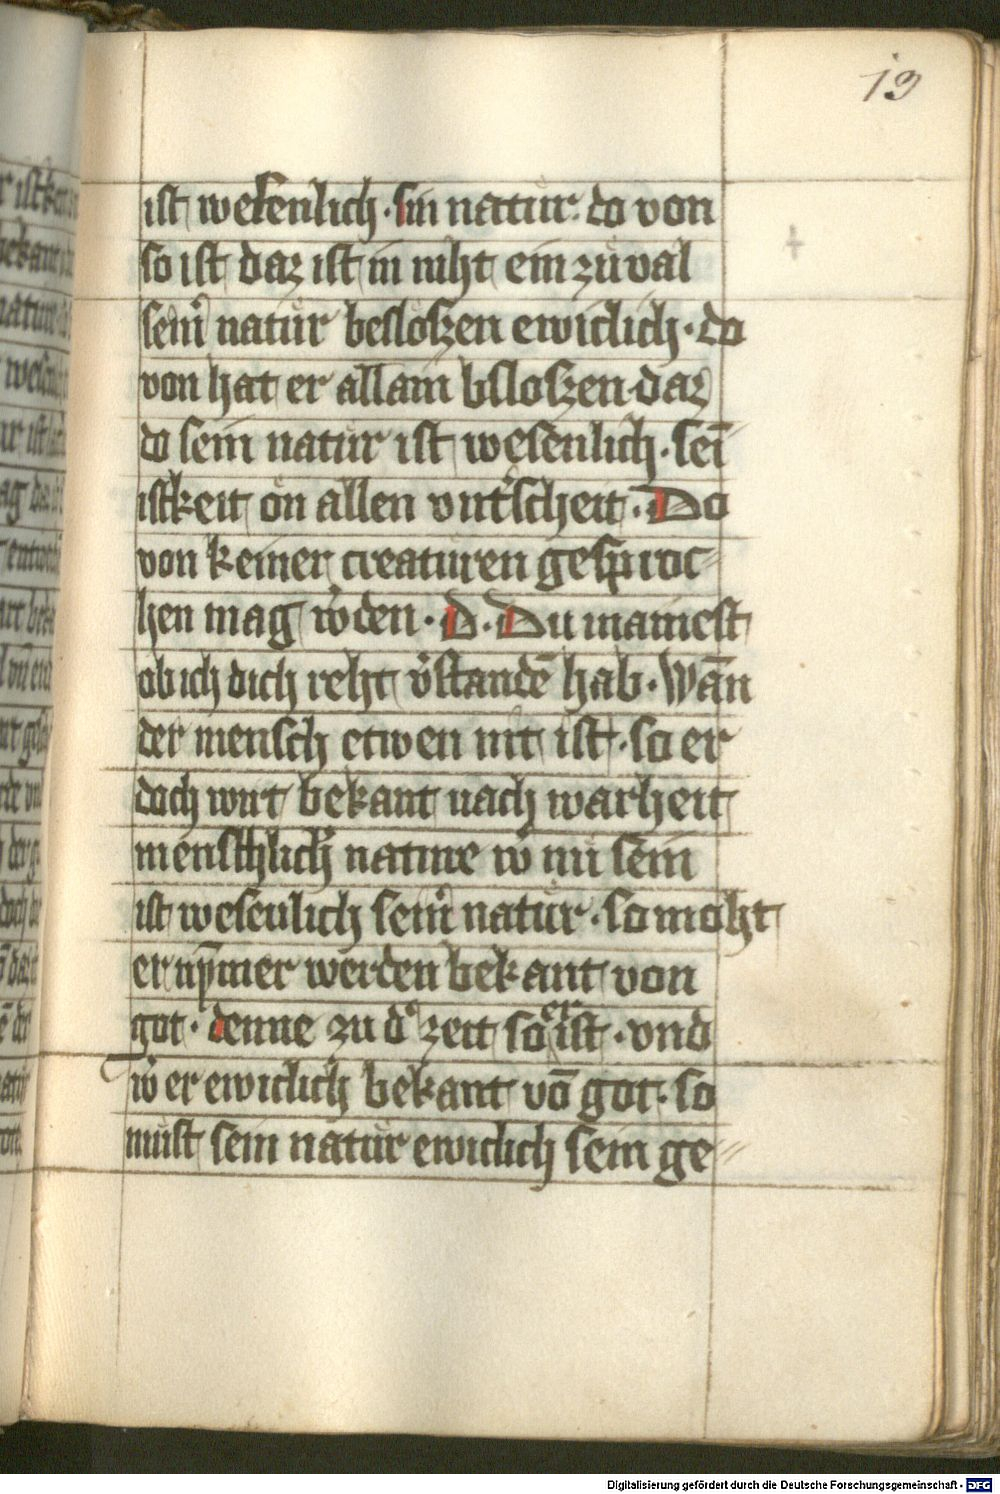 19
ist wesenlich · sin natur · do von
so ist daz ist in niht ein zuval
sein̄ natur beslossen ewiclich · do
von hat er allain bslossen · daz
do sein natur ist wesenlich · sei̅
istkeit on allen vnt͛scheit · Do
von keiner creaturen gesproc-
hen mag w͛den · D · Du mainest
ob ich dich reht v͛standē hab · Wān
der mensch etwen nit ist · so er
doch wirt bekant nach warheit
menschlich͛ nature w͛ nu sein
ist wesenlich sein͛ natur · so moht
er nȳmer werden bekant von
got · denne zu d͛ zeit so er ist · vnd
w͛ er ewiclich bekant vō got · so
must sein natur ewiclich sein ge-
Digitalisierung gefördert durch die Deutsche Forschungsgemeinschaft - DFG